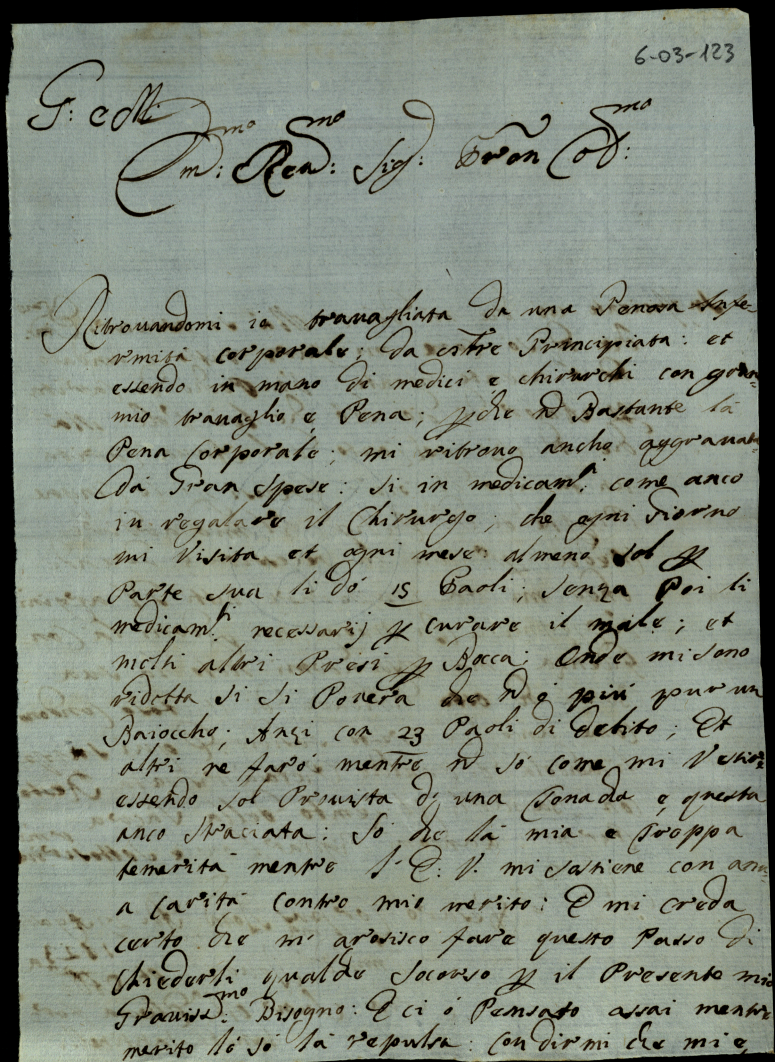 6-03-123
G: e M:
Em:mo Reu:mo Sig: Pron Col:mo
Ritrouandomi io trauagliata da una Penosa Infe-
rmità corporale; da estre Principiata: et
essendo in mano di medici e chirurchi con gran
mio trauaglio e Pena; p che nō Bastante la
Pena Corporale; mi ritrouo anche aggrauat
da Gran Spese: si in medicam:ti come anco
in regalare il Chirurgo; che ogni Giorno
mi Visita et ogni mese almeno sol p
Parte sua li dó 15 Paoli; senza Poi li
medicam:ti necessarij p curare il male; et
molti altri Presi p Bocca: Onde mi sono
ridotta si si Pouera che nō ó più pur un
Baioccho; Anzi con 23 Paoli di debito; Et
altri ne faró mentre nō só come mi Vestire
essendo sol Prouista d'una Tonacha e questa
anco straciata: Só che la mia e Troppa
temerità mentre l' E: V. mi sostiene con
a carità contro mio merito: E mi creda
certo che m' arosisco fare questo Passo di
Chiederli qualche Socorso p il Presente mio
Grauiss:mo Bisogno: E ci ó Pensato assai mentre
merito ló só la repulsa: con dirmi che mi e,